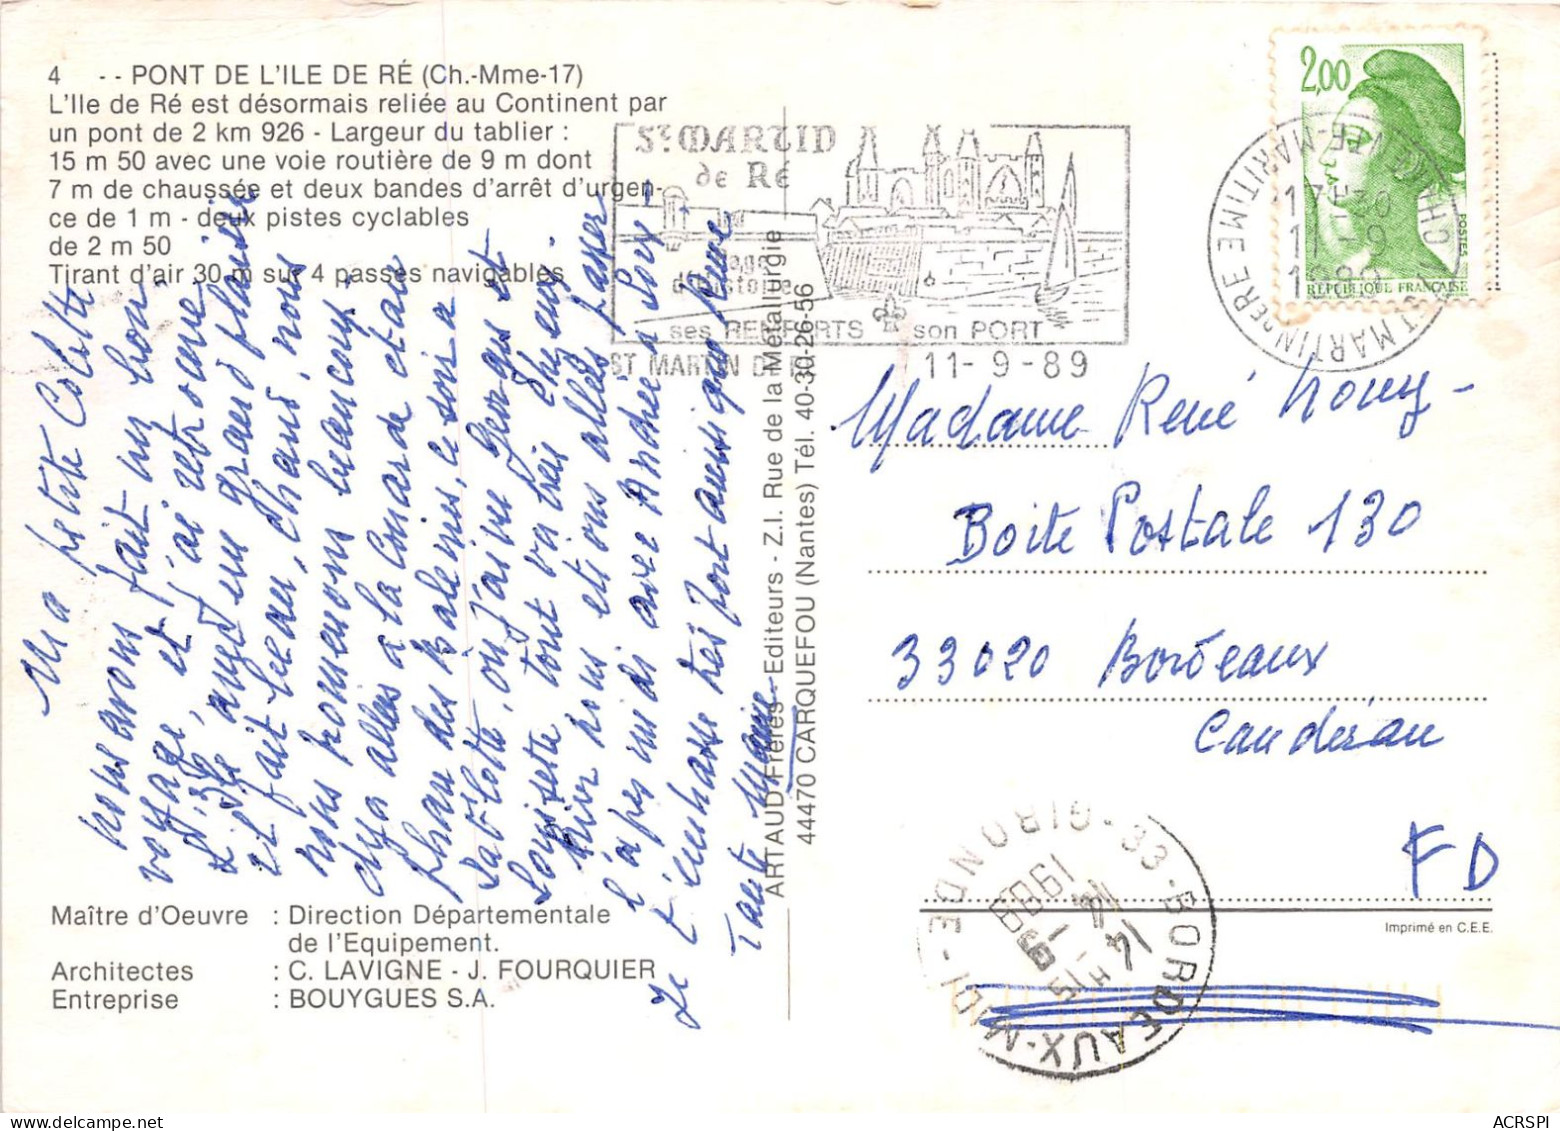 4 -- PONT DE L'ILE DE RÉ (Ch.-Mme-17)
L'Ile de Ré est désormais reliée au Continent par
un pont de 2 km 926 - Largeur du tablier :
15 m 50 avec une voie routière de 9 m dont
7 m de chaussée et deux bandes d'arrêt d'urgen-
ce de 1 m - deux pistes cyclables
de 2 m 50
Tirant d'air 30 m sur 4 passes navigables
Ma petite Colette
nous avons fait un bon
voyage, et j'ai retrouvé
L'Ile avec un grand plaisir
il fait beau, chaud, nous
nous promenons beaucoup,
allées à la Couarde et au
Phare des Baleines, ce soir à
Sablote, où j'ai vu Georges et
Louisette tout va très bien.
hier nous étions allées passer
l'après midi avec Andrée à Loix
Je t'embrasse très fort ainsi que René
Tante Marie
Maître d'Oeuvre : Direction Départementale
de l'Equipement.
Architectes : C. LAVIGNE - J. FOURQUIER
Entreprise : BOUYGUES S.A.
ARTAUD Frères - Editeurs - Z.I. Rue de la Métallurgie
44470 CARQUEFOU (Nantes) Tél. 40-30-26-56
St MARTIN
de Ré
d'histoire
ses REMPARTS son PORT
ST MARTIN DE RE 11-9-89
17H30
11-9
1989
ST MARTIN DE RE
CHARENTE-MARITIME
2,00
POSTES
REPUBLIQUE FRANÇAISE
Madame René
Boite Postale 130
33020 Bordeaux
Caudéran
FD
Imprimé en C.E.E.
33-BORDEAUX-MIDI-GIRONDE
14H15
14-9
1989
ACRSPI